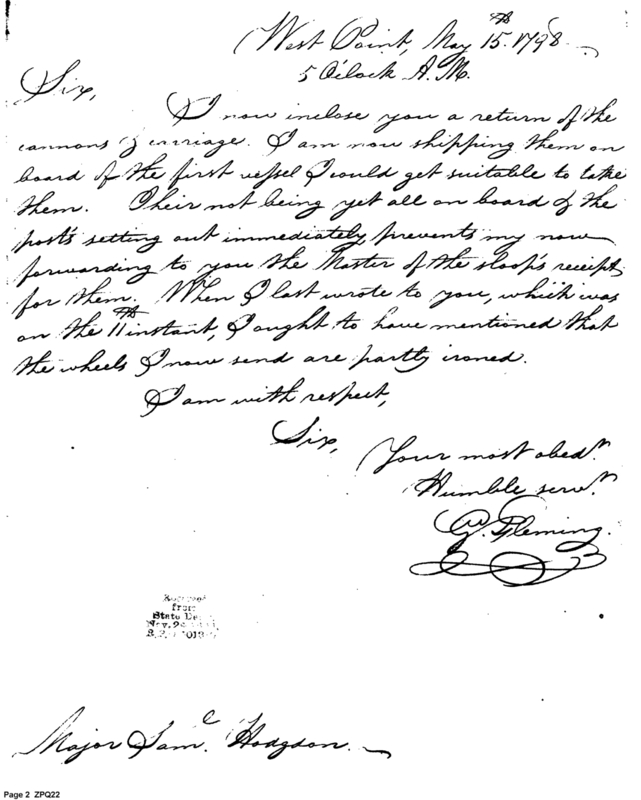 West Point, May 15th 1798
5 O'Clock A.M.
Sir,
I now inclose you a return of the
cannons & carriage. I am now shipping them on
board of the first vessel I could get suitable to take
them. Their not being yet all on board & the
post's setting out immediately prevents my now
forwarding to you the Master of the sloop's receipt
for them. When I last wrote to you, which was
on the 11th instant, I ought to have mentioned that
the wheels I now send are partly ironed.
I am with respect,
Sir,
Your most obedt.
Humble servt.
G. Fleming.
from
State De
Nov. 2
Major Saml. Hodgdon.
Page 2 ZPQ22